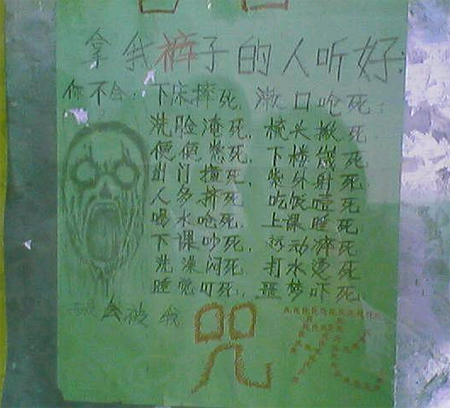 拿我裤子的人听好:
你不会: 下床摔死, 漱口呛死;
洗脸淹死, 梳头揪死
便便憋死, 下楼崴死
出门撞死, 紫外射死
人多挤死, 吃饭噎死
喝水呛死, 上课睡死
下课吵死, 运动猝死
洗澡闷死, 打水烫死
睡觉叮死, 噩梦吓死
会被我 咒死